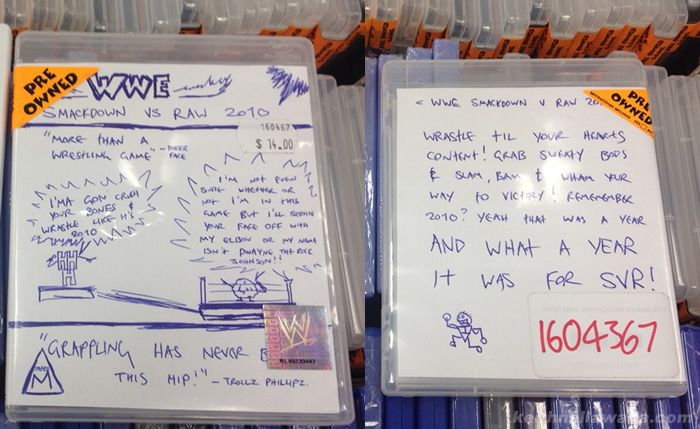 PRE
OWNED
WWE
SMACKDOWN VS RAW 2010
160467
$ 14.00
"MORE THAN A
WRESTLING GAME" - POKER
FACE
I'MA GON CRUSH
YOUR BONES &
WRASTLE LIKE IT'S
2010
I'M NOT EVEN
SURE WHETHER OR
NOT I'M IN THIS
GAME BUT I'LL
YOUR FACE OFF WITH
MY ELBOW OR MY NAME
ISN'T DWAYNE THE ROCK
JOHNSON!!
W
"GRAPPLING HAS NEVER
THIS HIP!" - TROLLZ PHILLIPZ.
M
< WWE SMACKDOWN V RAW 20
PRE
OWNED
WRASTLE TIL YOUR HEARTS
CONTENT! GRAB SWEATY BODS
& SLAM, BAM & WHAM YOUR
WAY TO VICTORY! REMEMEMBER
2010? YEAH THAT WAS A YEAR
AND WHAT A YEAR
IT WAS FOR SVR!
1604367